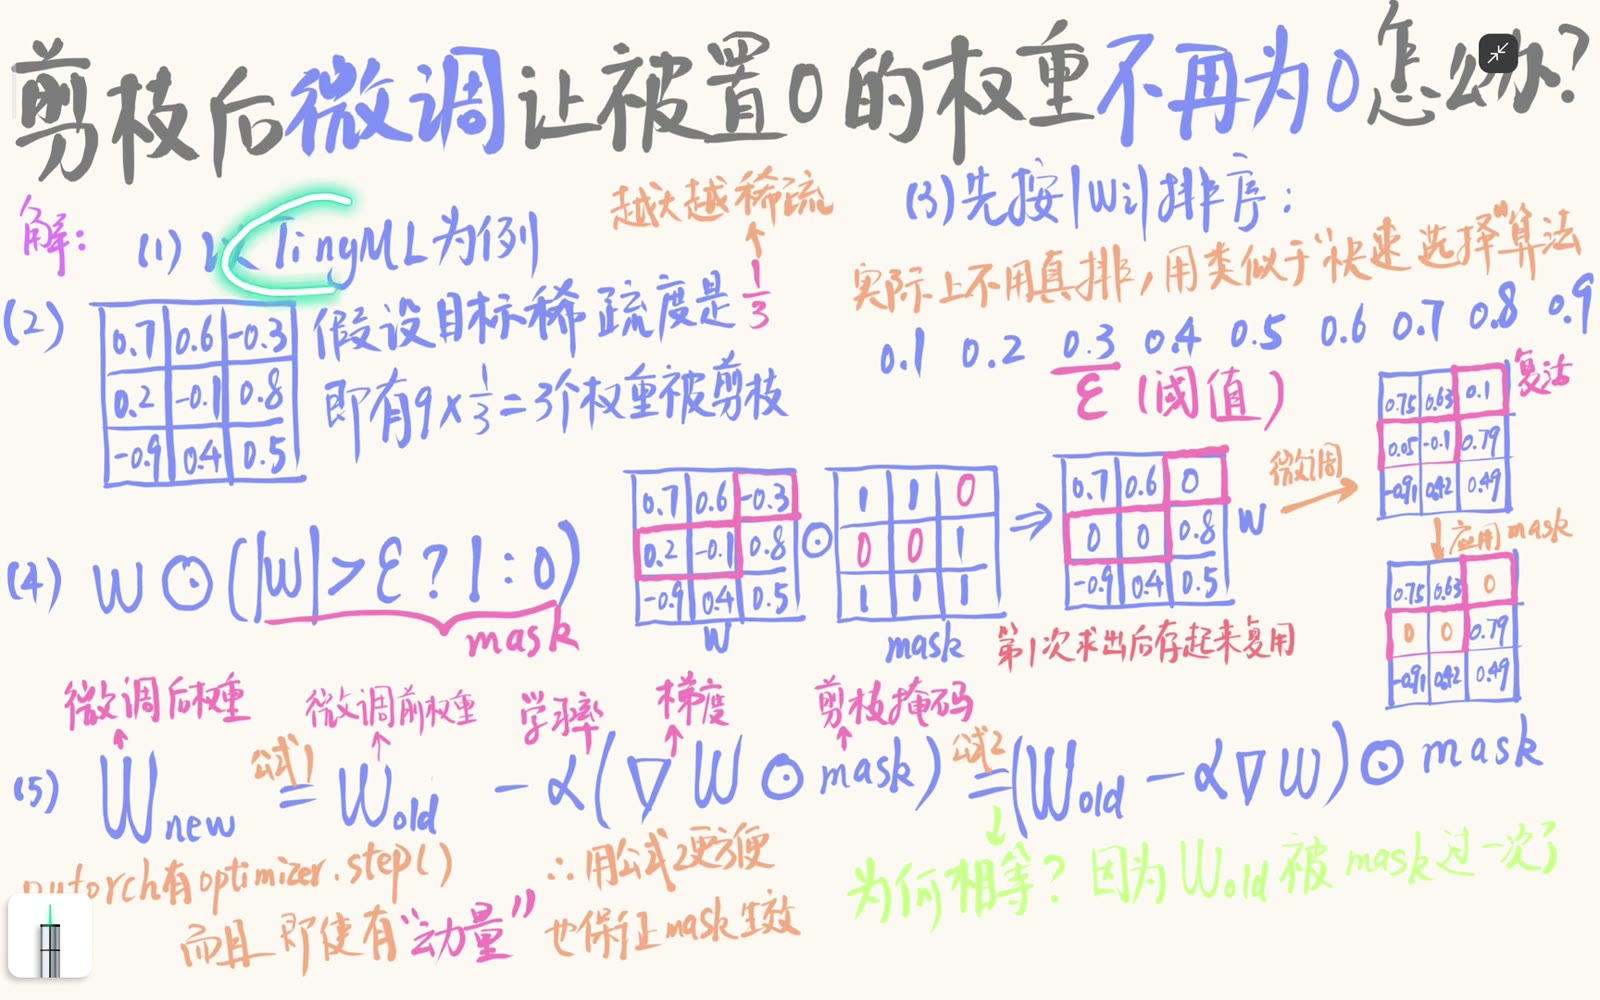 剪枝后微调让被置0的权重不再为0怎么办?
解:
(1) 以TinyML为例
(2)
0.7 0.6 -0.3
0.2 -0.1 0.8
-0.9 0.4 0.5
越大越稀疏
假设目标稀疏度是1/3
即有9×1/3=3个权重被剪枝
(3)先按|Wi|排序:
实际上不用真排,用类似于"快速选择"算法
0.1 0.2 0.3 0.4 0.5 0.6 0.7 0.8 0.9
ε (阈值)
(4) W⊙(|W|>ε?1:0)
mask
0.7 0.6 -0.3
0.2 -0.1 0.8
-0.9 0.4 0.5
W
⊙
1 1 0
0 0 1
1 1 1
mask
⇒
0.7 0.6 0
0 0 0.8
-0.9 0.4 0.5
W
第1次求出后存起来复用
微调
0.75 0.63 0.1
0.05 -0.1 0.79
-0.91 0.42 0.49
复活
应用mask
0.75 0.63 0
0 0 0.79
-0.91 0.42 0.49
微调后权重 微调前权重 学习率 梯度 剪枝掩码
公式1 公式2
(5) Wnew = Wold - α(∇W⊙mask) = (Wold - α∇W)⊙mask
pytorch有optimizer.step()
∴用公式2更方便
而且即使有"动量"也保证mask生效
为何相等?因为Wold被mask过一次了